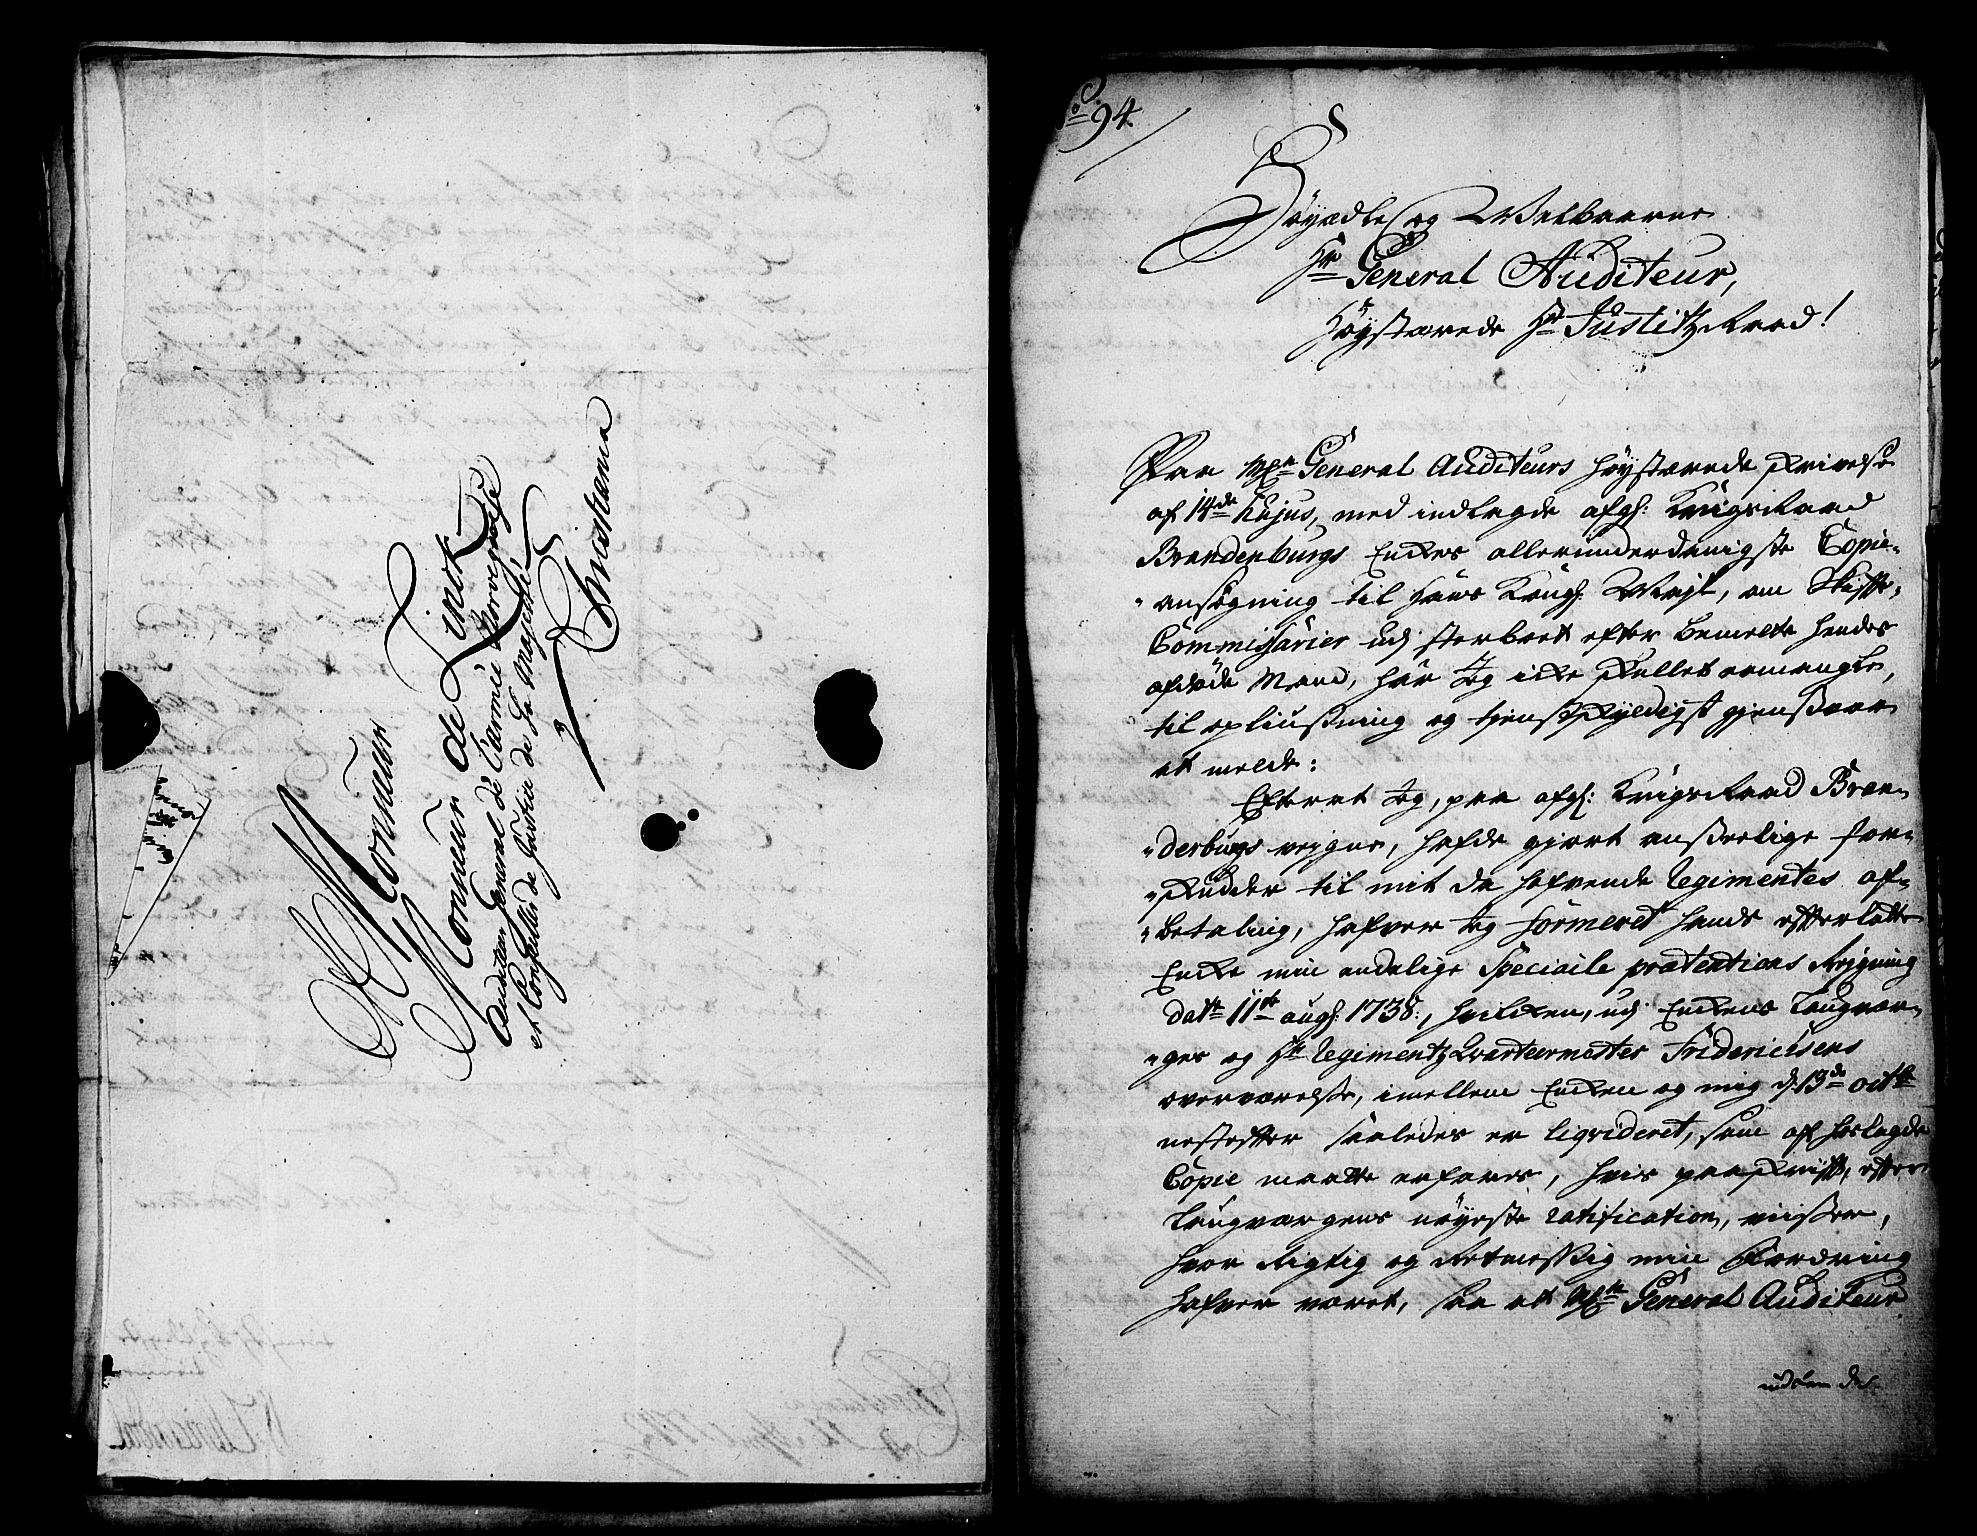 Monsieur
Monsieur de Linde
Auditeur General de L'armée Norvegoise
et Conseiller de Justice de Sa Majesté
a Christiania
No 94.
Høyædle og Welbaarne
Hr General Auditeur,
Høystærede Hr Justitz Raad!
Paa Hr General Auditeurs høystærede skrivelse
af 14de hujus, med indlagde afg: Krigs Raad
Brandenburgs Enckes allerunderdanigste Copie
ansøgning til Hans Kongl: Mayt, om Skifte-
Commissarier udj sterboet efter bemelte hendes
afdøde Mand, har Jeg icke skullet ermangle,
til opliusning og tienstskyldigst gienswar
at melde:
Efterat Jeg, paa afg: Krigs Raad Bran-
derburgs vegne, hafde giort anseelige for-
skudder til mit da hafvende Regimentes af-
betaling, hafver Jeg formeret hands efterlatte
Encke min endelige Speciaile prætentions Reigning
dato 11te aug: 1738, hvilcken, udj Enckens Laugvær-
ges og Hr Regimentz Qvarteermester Fridericisens
overværelse, imellem Encken og mig d: 13de octbr
nestefter saaledes er liqvideret, som af hoslagde
Copie maatte erfares, hvis paaskrifft, efter
Laugværgens nøyeste ratification, viiser,
hvor Rigtig og Retmessig min Fordring
hafver været, saa at Hr General Auditeur